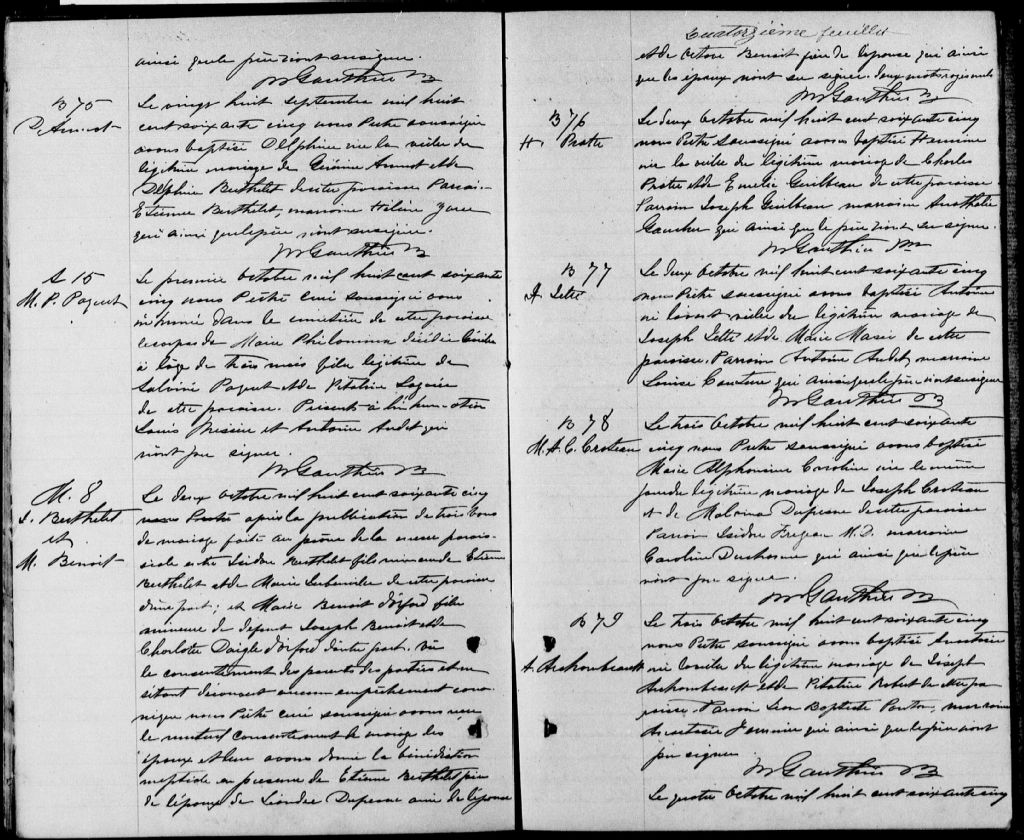 ainsi que le père n'ont su signer.
M Gauthier Ptre
B 75
D. Amnot
Le vingt huit septembre mil huit
cent soixante cinq nous Prêtre soussigné
avons baptisé Delphine née la veille du
légitime mariage de
Delphine Berthelet de cette paroisse Parrain
Etienne Berthelet, marraine Hélène
qui ainsi que le père n'ont su signer.
M Gauthier Ptre
S 15
M. P. Paquet
Le premier Octobre mil huit cent soixante
cinq nous Prêtre Curé soussigné avons
inhumé dans le cimetière de cette paroisse
le corps de Marie Philomène décédée
à l'âge de trois mois fille légitime de
Paquet et de Vitaline
de cette paroisse. Présents à l'inhumation
Louis Messier et Antoine Audet qui
n'ont pu signer.
M Gauthier Ptre
M. 8
I. Berthelet
et
M. Benoit
Le deux Octobre mil huit cent soixante cinq
après la publication de trois bans
de mariage faite au prône de la messe parois-
siale entre Isidore Berthelet fils mineur de Etienne
Berthelet et de Marie de cette paroisse
d'une part; et Marie Benoit d'Oxford fille
mineure de défunt Joseph Benoit et de
Charlotte Daigle d'Oxford d'autre part. Vu
le consentement des parents des parties et ne
s'étant découvert aucun empêchement cano-
nique nous Prêtre curé soussigné avons reçu
le mutuel consentement de mariage des
époux et leur avons donné la bénédiction
nuptiale en présence de Etienne Berthelet père
de l'époux de Dupesse ami de l'épouse
Quatorzième feuillet
et de Octave Benoit de l'épouse qui ainsi
que les époux n'ont su signer. deux mots rayés nuls
M Gauthier Ptre
B 76
H. Protte
Le deux Octobre mil huit cent soixante cinq
nous Prêtre soussigné avons baptisé Hermine
née la veille du légitime mariage de Charles
Protte et de Emélie Guilbeau de cette paroisse.
Parrain Joseph Guilbeau marraine
qui ainsi que le père n'ont su signer.
M Gauthier Ptre
B 77
A. Lette
Le deux Octobre mil huit cent soixante cinq
nous Prêtre soussigné avons baptisé Antoine
né l'avant veille du légitime mariage de
Joseph Lette et de Marie de cette
paroisse. Parrain Antoine Audet, marraine
Louise Couture qui ainsi que le père n'ont su signer
M Gauthier Ptre
B 78
M. A. C. Croteau
Le trois Octobre mil huit cent soixante
cinq nous Prêtre soussigné avons baptisé
Marie Alphonsine Caroline née le même
jour du légitime mariage de Joseph Croteau
et de Malvina Dupesse de cette paroisse
Parrain Isidore M.D. marraine
Caroline qui ainsi que le père
n'ont pu signer.
M Gauthier Ptre
B 79
A. Archambeault
Le trois Octobre mil huit cent soixante cinq
nous Prêtre soussigné avons baptisé
né la veille du légitime mariage de Joseph
Archambeault et de Vitaline Robert de cette pa-
roisse. Parrain Léon Baptiste marraine
qui ainsi que le père n'ont
pu signer
M Gauthier Ptre
Le quatre Octobre mil huit cent soixante cinq